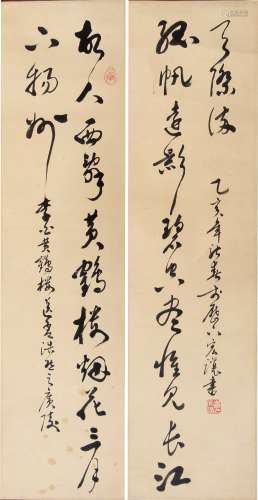 故人西辭黃鶴樓烟花三月
下揚州
李白黃鶴樓送孟浩然之廣陵
孤帆遠影碧空盡惟見長江
天際流
乙亥年
書